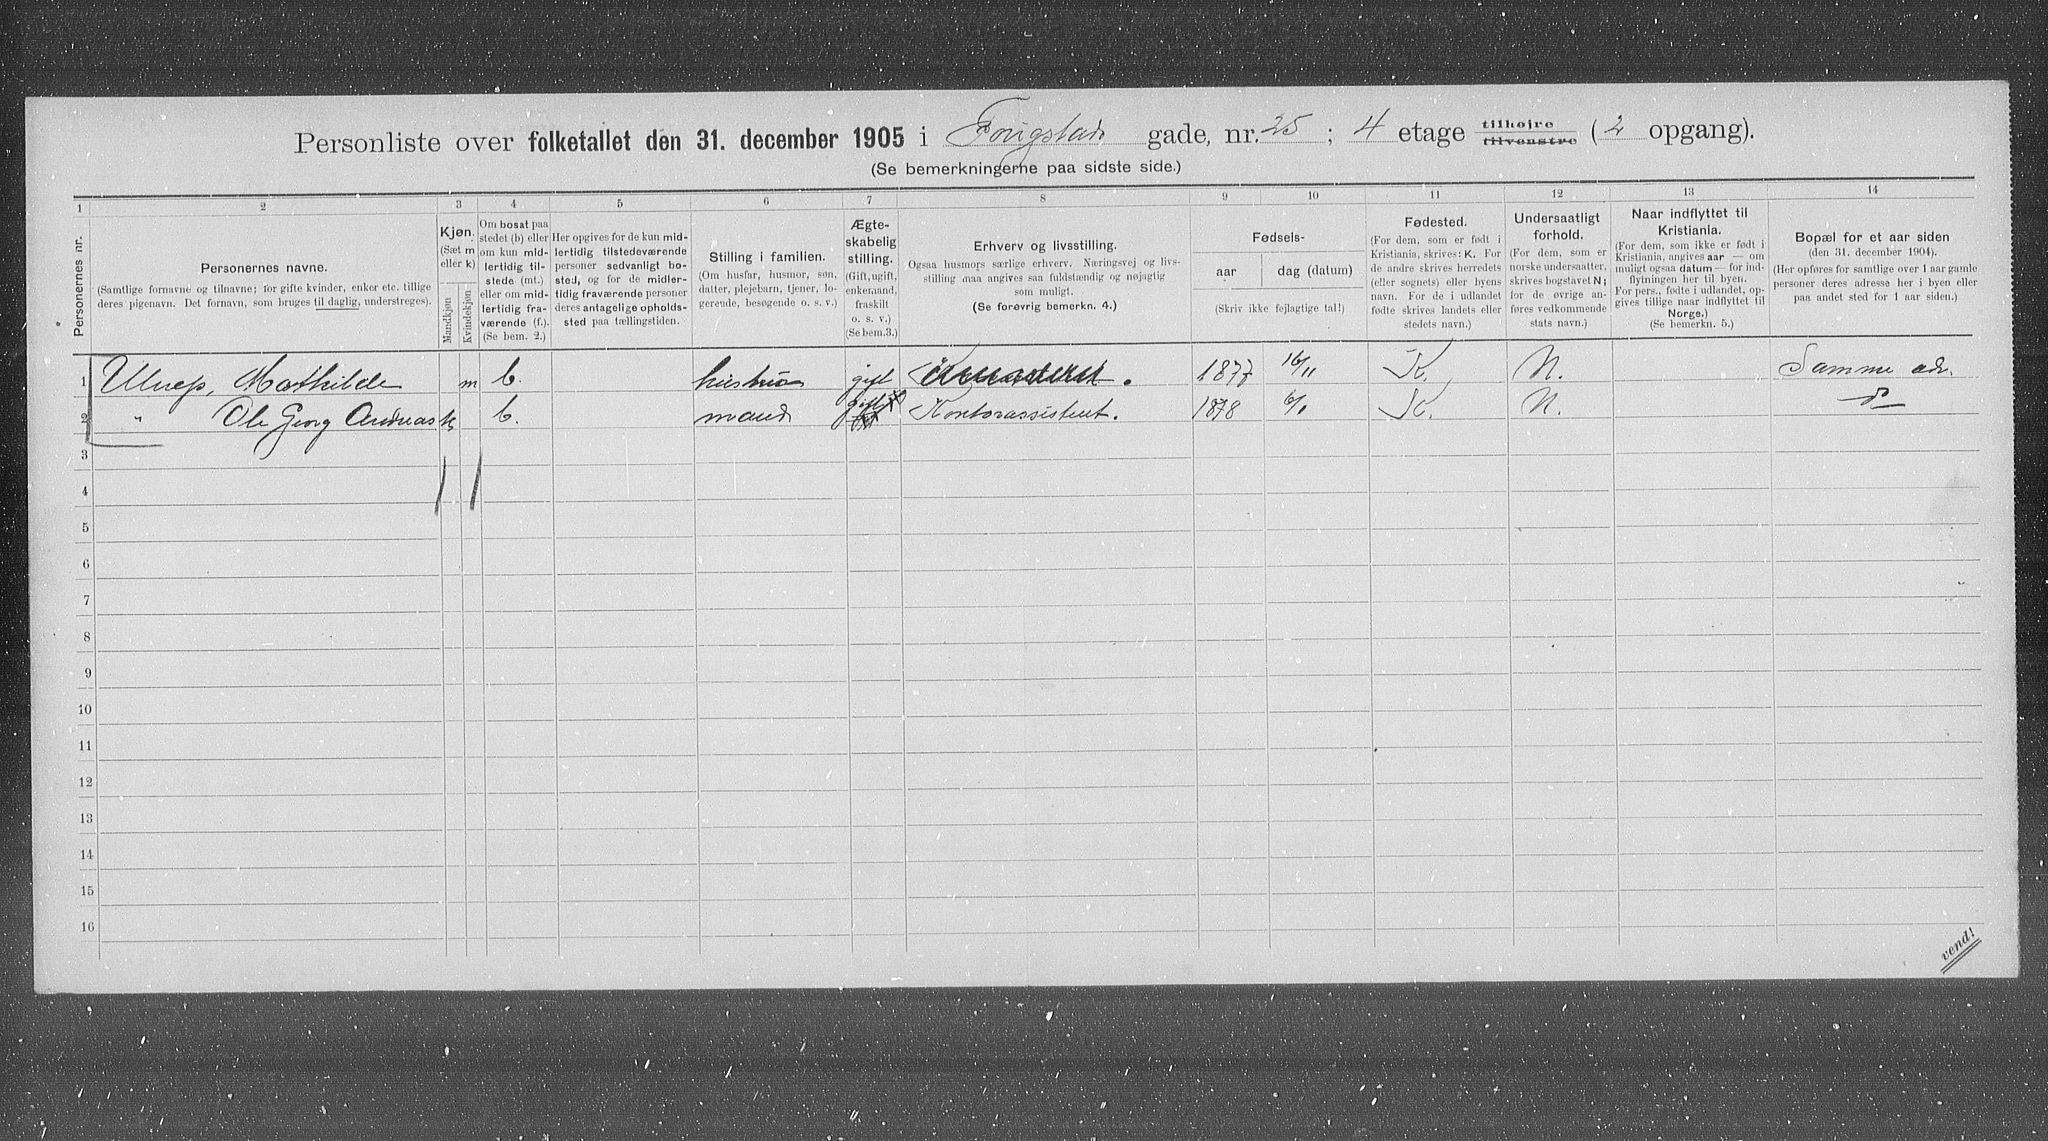 Personliste over folketallet den 31. december 1905 i Fougstads gade, nr. 25 ; 4 etage tilhøjre tilvenstre ( 2 opgang).
(Se bemerkningerne paa sidste side.)
1 2 3 4 5 6 7 8 9 10 11 12 13 14
Personernes nr.
Personernes navne.
(Samtlige fornavne og tilnavne; for gifte kvinder, enker etc. tillige
deres pigenavn. Det fornavn, som bruges til daglig, understreges).
Kjøn.
(Sæt m
eller k)
Mandkjøn
Kvindekjøn
Om bosat paa
stedet (b) eller
om kun mid-
lertidig til-
stede (mt.)
eller om mid-
lertidig fra-
værende (f.).
(Se bem. 2.)
Her opgives for de kun mid-
lertidig tilstedeværende
personer sedvanligt bo-
sted, og for de midler-
tidig fraværende personer
deres antagelige opholds-
sted paa tællingstiden.
Stilling i familien.
(Om husfar, husmor, søn,
datter, plejebarn, tjener, lo-
gerende, besøgende o. s. v.)
Ægte-
skabelig
stilling.
(Gift, ugift,
enkemand,
fraskilt
o. s. v.)
(Se bem. 3.)
Erhverv og livsstilling.
Ogsaa husmors særlige erhverv. Næringsvej og livs-
stilling maa angives saa fuldstændig og nøjagtig
som muligt.
(Se forøvrig bemerkn. 4.)
Fødsels-
aar
dag (datum)
(Skriv ikke fejlagtige tal!)
Fødested.
(For dem, som er født i
Kristiania, skrives: K. For
de andre skrives herredets
(eller sognets) eller byens
navn. For de i udlandet
fødte skrives landets eller
stedets navn.)
Undersaatligt
forhold.
(For dem, som er
norske undersaatter,
skrives bogstavet N;
for de øvrige an-
føres vedkommende
stats navn.)
Naar indflyttet til
Kristiania.
(For dem, som ikke er født i
Kristiania, angives aar — om
muligt ogsaa datum — for ind-
flytningen her til byen.
For pers., fødte i udlandet, op-
gives tillige naar indflyttet til
Norge.)
(Se bemerkn. 5.)
Bopæl for et aar siden
(den 31. december 1904).
(Her opføres for samtlige over 1 aar gamle
personer deres adresse her i byen eller
paa andet sted for 1 aar siden.)
1 Mathilde m b. hustru gift 1877 16/11 K. N. Samme adr.
2 " Ole Georg Andreas k b. mand gift Kontorassistent. 1878 K. N. do
3
4
5
6
7
8
9
10
11
12
13
14
15
16
vend!